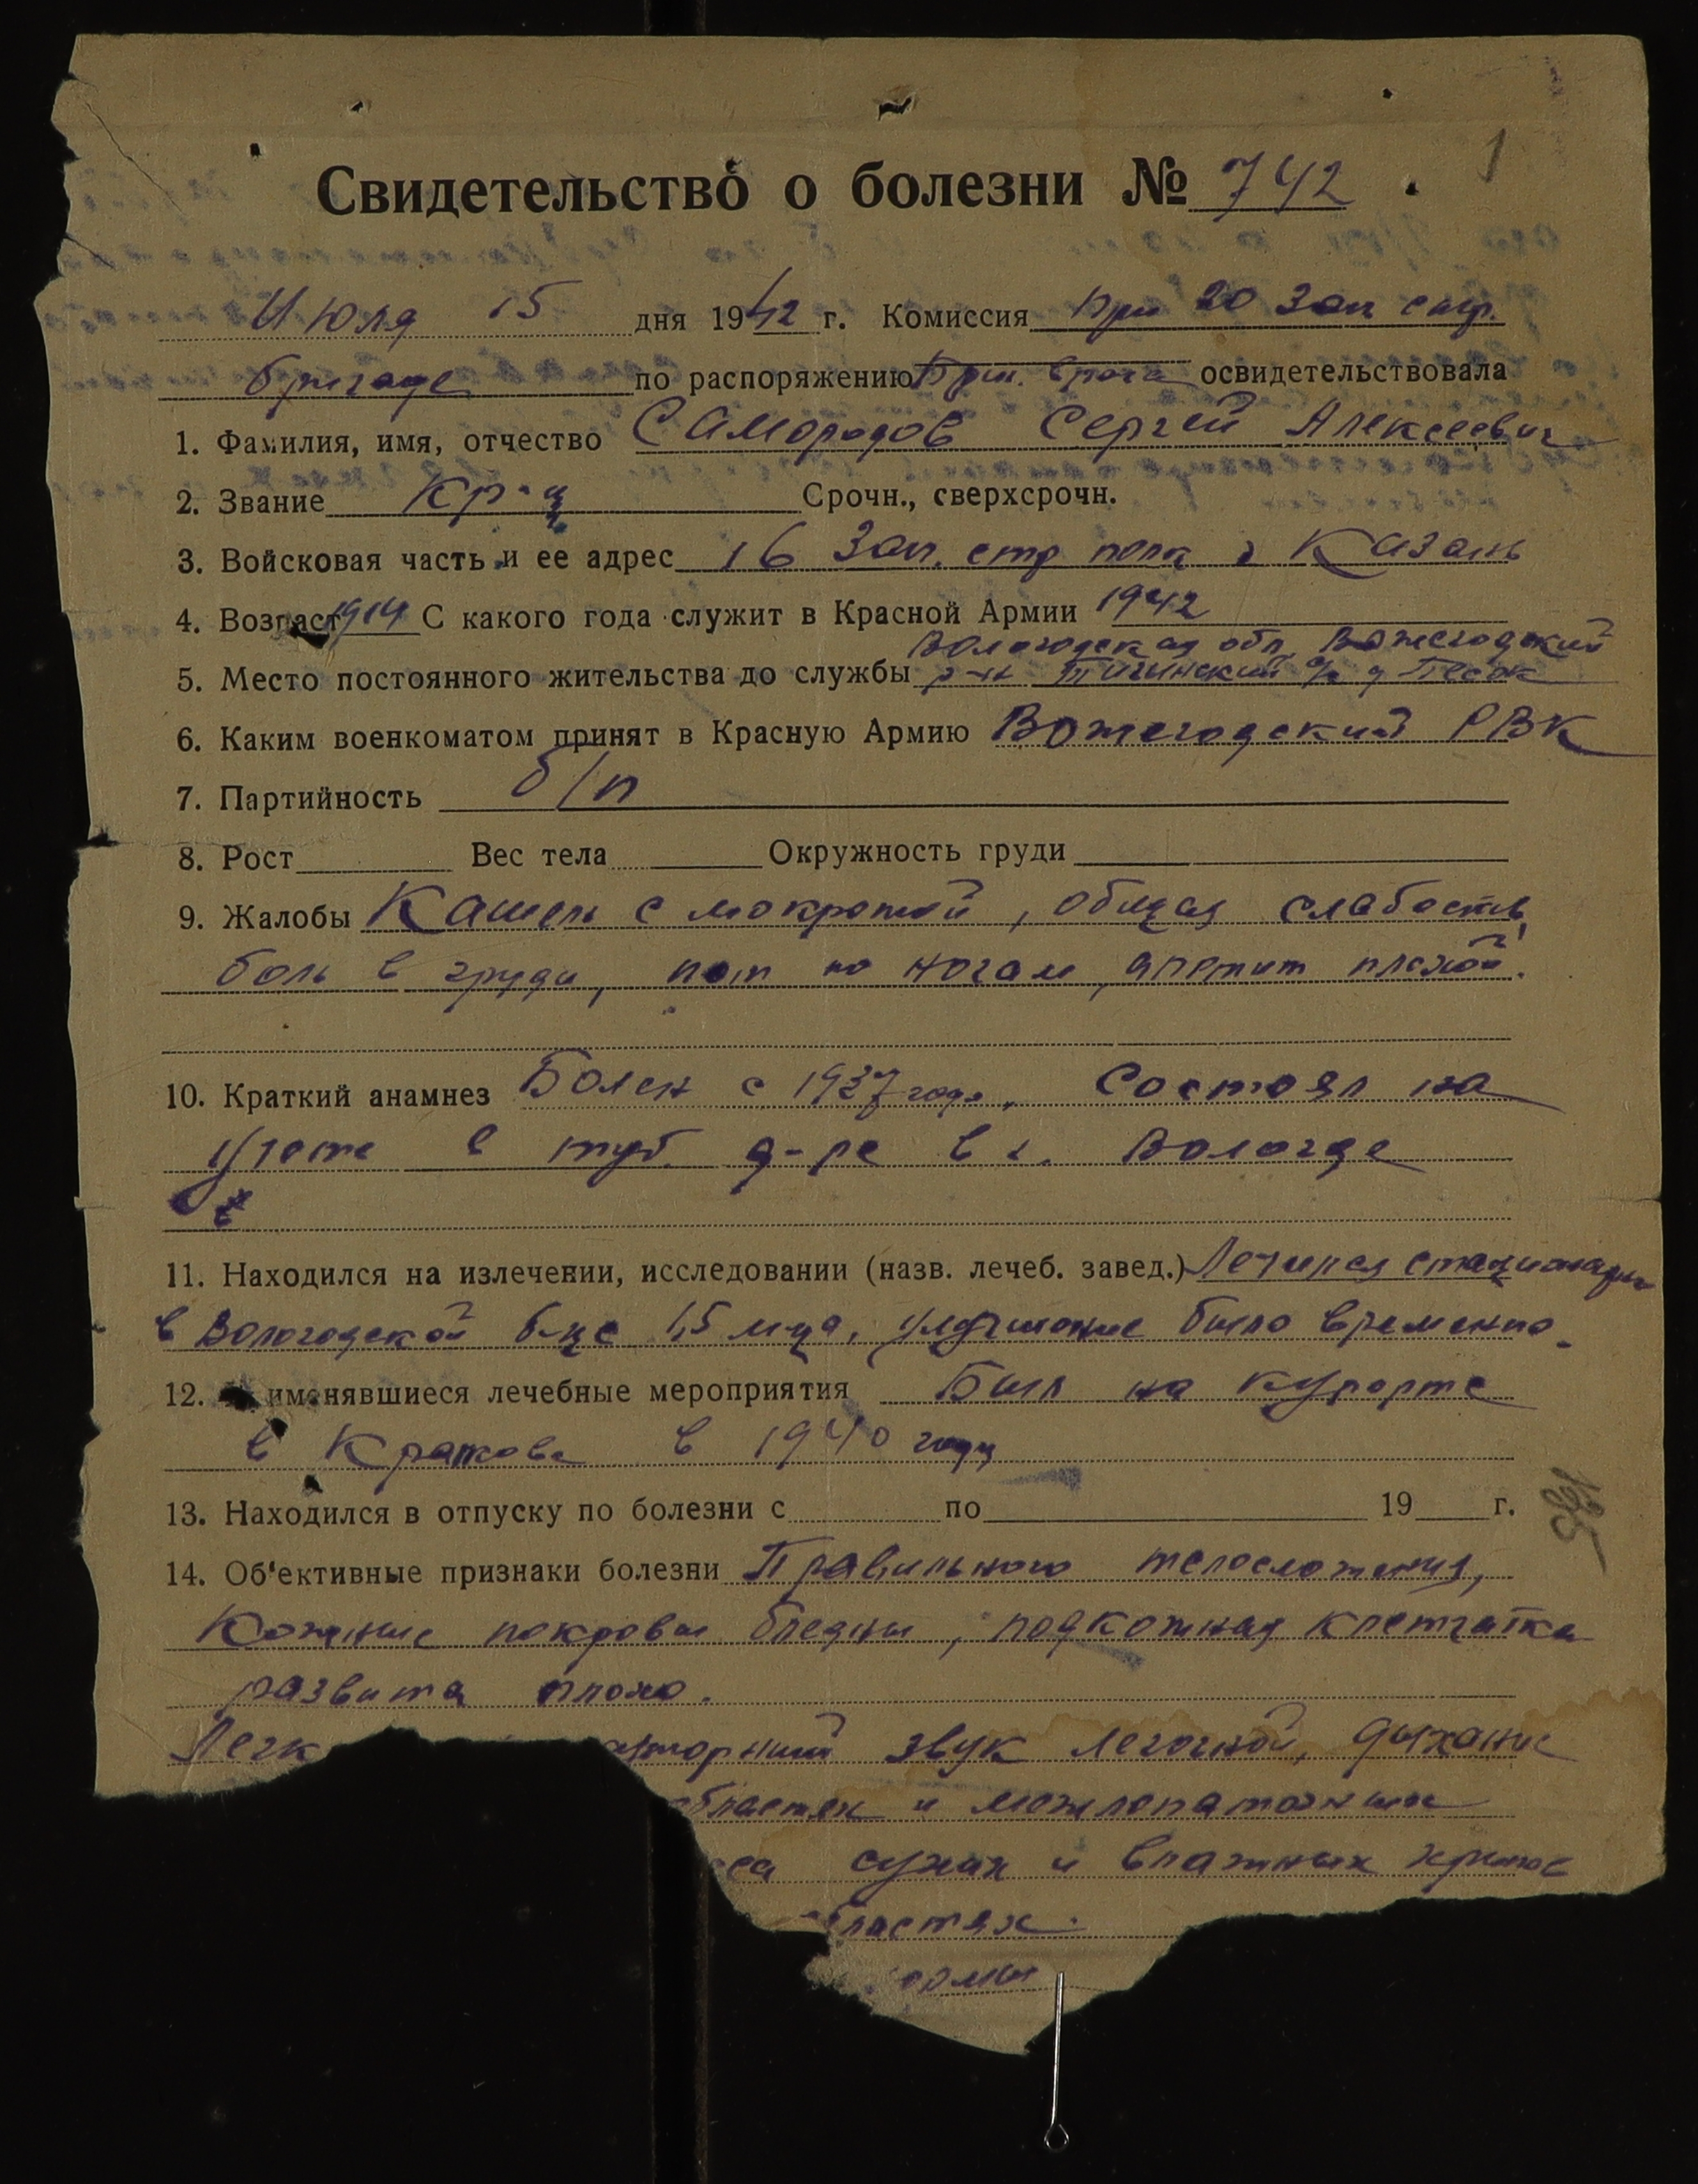 1
Свидетельство о болезни № 742
Июля 15 дня 1942 г. Комиссия при 20 Зап стр.
бригаде по распоряжению Бриг. врача освидетельствовала
1. Фамилия, имя, отчество Самородов Сергей Алексеевич
2. Звание Кр-ц Срочн., сверхсрочн.
3. Войсковая часть и ее адрес 16 Зап. стр полк г Казань
4. Возраст 1914 С какого года служит в Красной Армии 1942
Вологодская обл. Вожегодский
5. Место постоянного жительства до службы р-н Тигинский с/с д Песок
6. Каким военкоматом принят в Красную Армию Вожегодский РВК
7. Партийность б/п
8. Рост Вес тела Окружность груди
9. Жалобы Кашель с мокротой, общая слабость,
боль в груди, пот по ногам, апетит плохой.
10. Краткий анамнез Болен с 1937 года, Состоял на
учете в туб. д-ре в г. Вологде
11. Находился на излечении, исследовании (назв. лечеб. завед.) Лечился стационарн
в Вологодской б-це 1,5 м-ца, улучшение было временно.
12. именявшиеся лечебные мероприятия Был на курорте
в 1940 году
13. Находился в отпуску по болезни с по 19 г.
14. Об'ективные признаки болезни Правильного телосложения,
Кожные покровы бледны, подкожная клетчатка
развита плохо.
Легк торный звук легочной, дыхание
областях и межлопаточных
сса сухих и влажных хрипов
бластях.
ормы